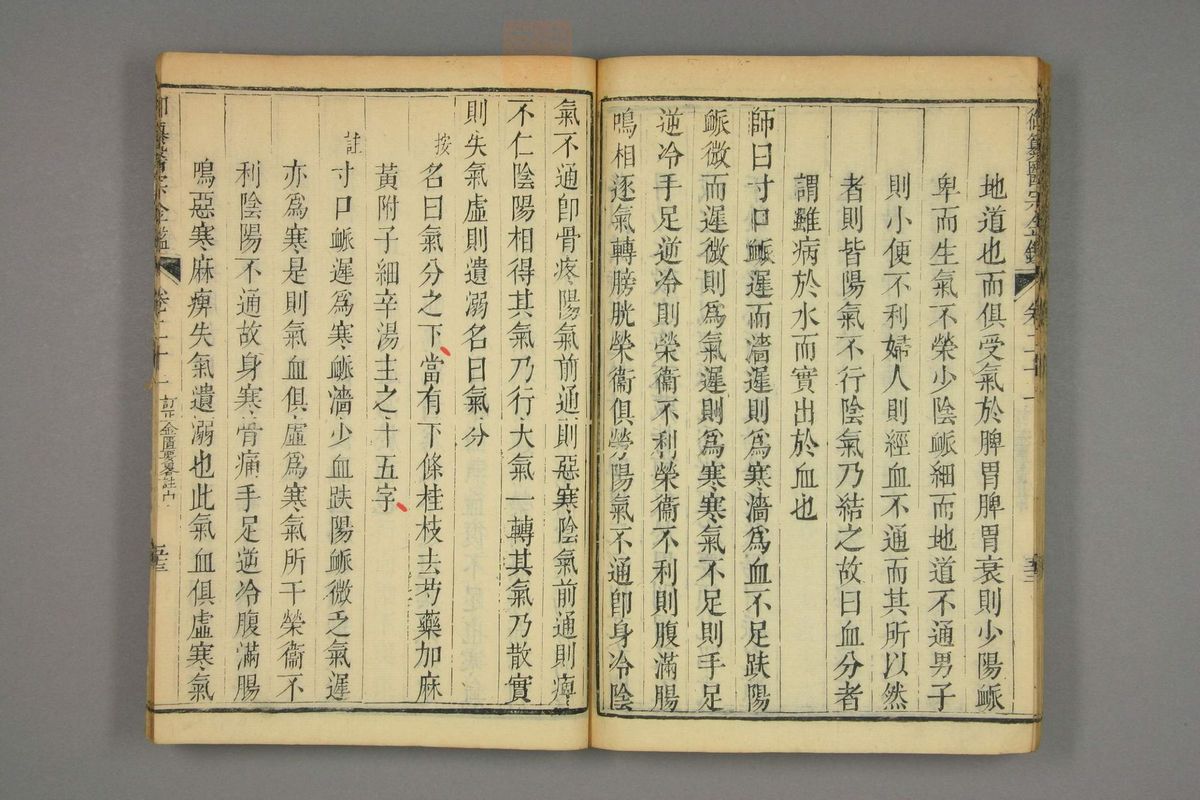 地道也而俱受氣於脾胃脾胃衰則少陽脈
卑而生氣不榮少陰脈細而地道不通男子
則小便不利婦人則經血不通而其所以然
者則皆陽氣不行陰氣乃結之故曰血分者
謂雖病於水而實出於血也
師曰寸口脈遲而濇遲則爲寒濇爲血不足趺陽
脈微而遲微則爲氣遲則爲寒寒氣不足則手足
逆冷手足逆冷則榮衞不利榮衞不利則腹滿腸
鳴相逐氣轉膀胱榮衞俱勞陽氣不通卽身冷陰
氣不通卽骨疼陽氣前通則惡寒陰氣前通則痺
不仁陰陽相得其氣乃行大氣一轉其氣乃散實
則失氣虛則遺溺名曰氣分
按 名曰氣分之下當有下條桂枝去芍藥加麻
黃附子細辛湯主之十五字
註 寸口脈遲爲寒脈濇少血趺陽脈微乏氣遲
亦爲寒是則氣血俱虛爲寒氣所干榮衞不
利陰陽不通故身寒骨痛手足逆冷腹滿腸
鳴惡寒麻痺失氣遺溺也此氣血俱虛寒氣
御纂醫宗金鑑 卷二十一 訂正金匱要畧註